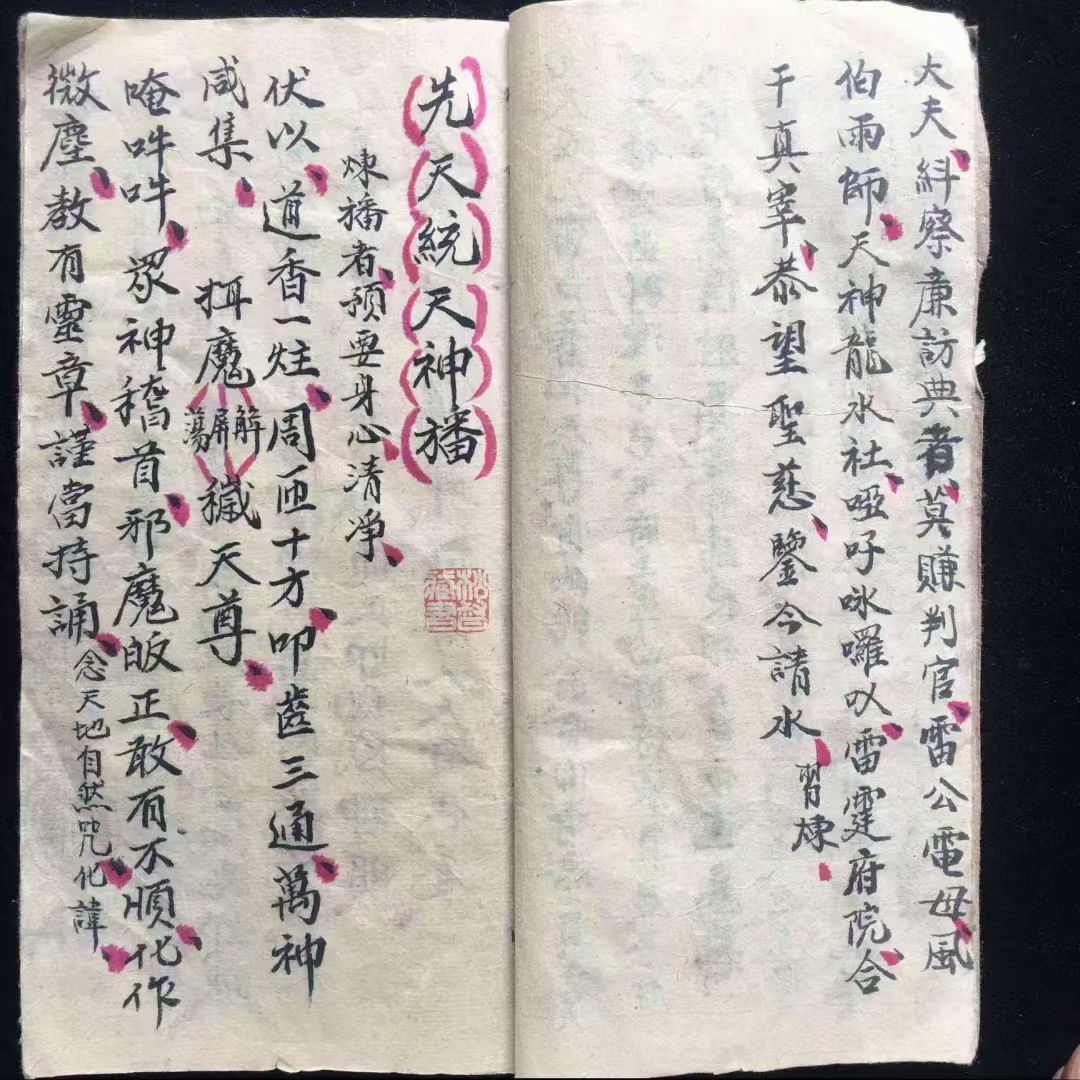 大夫、糾察廉訪典者、莫賺判官、雷公電母、風
伯雨師、天神龍水社、啞吁咏囉㕥、雷霆府院、合
干真宰、恭望聖慈、鑒今請水、
習煉、
先天統天神旛
煉旛者、預要身心清凈、
伏以、道香一炷、周匝十方、叩齒三通、萬神
咸集、
魔
解
屏
蕩
穢天尊、
唵吽吽、眾神稽首、邪魔皈正、敢有不順、化作
微塵、教有靈章、謹當持誦、
念天地自然咒、化諱、